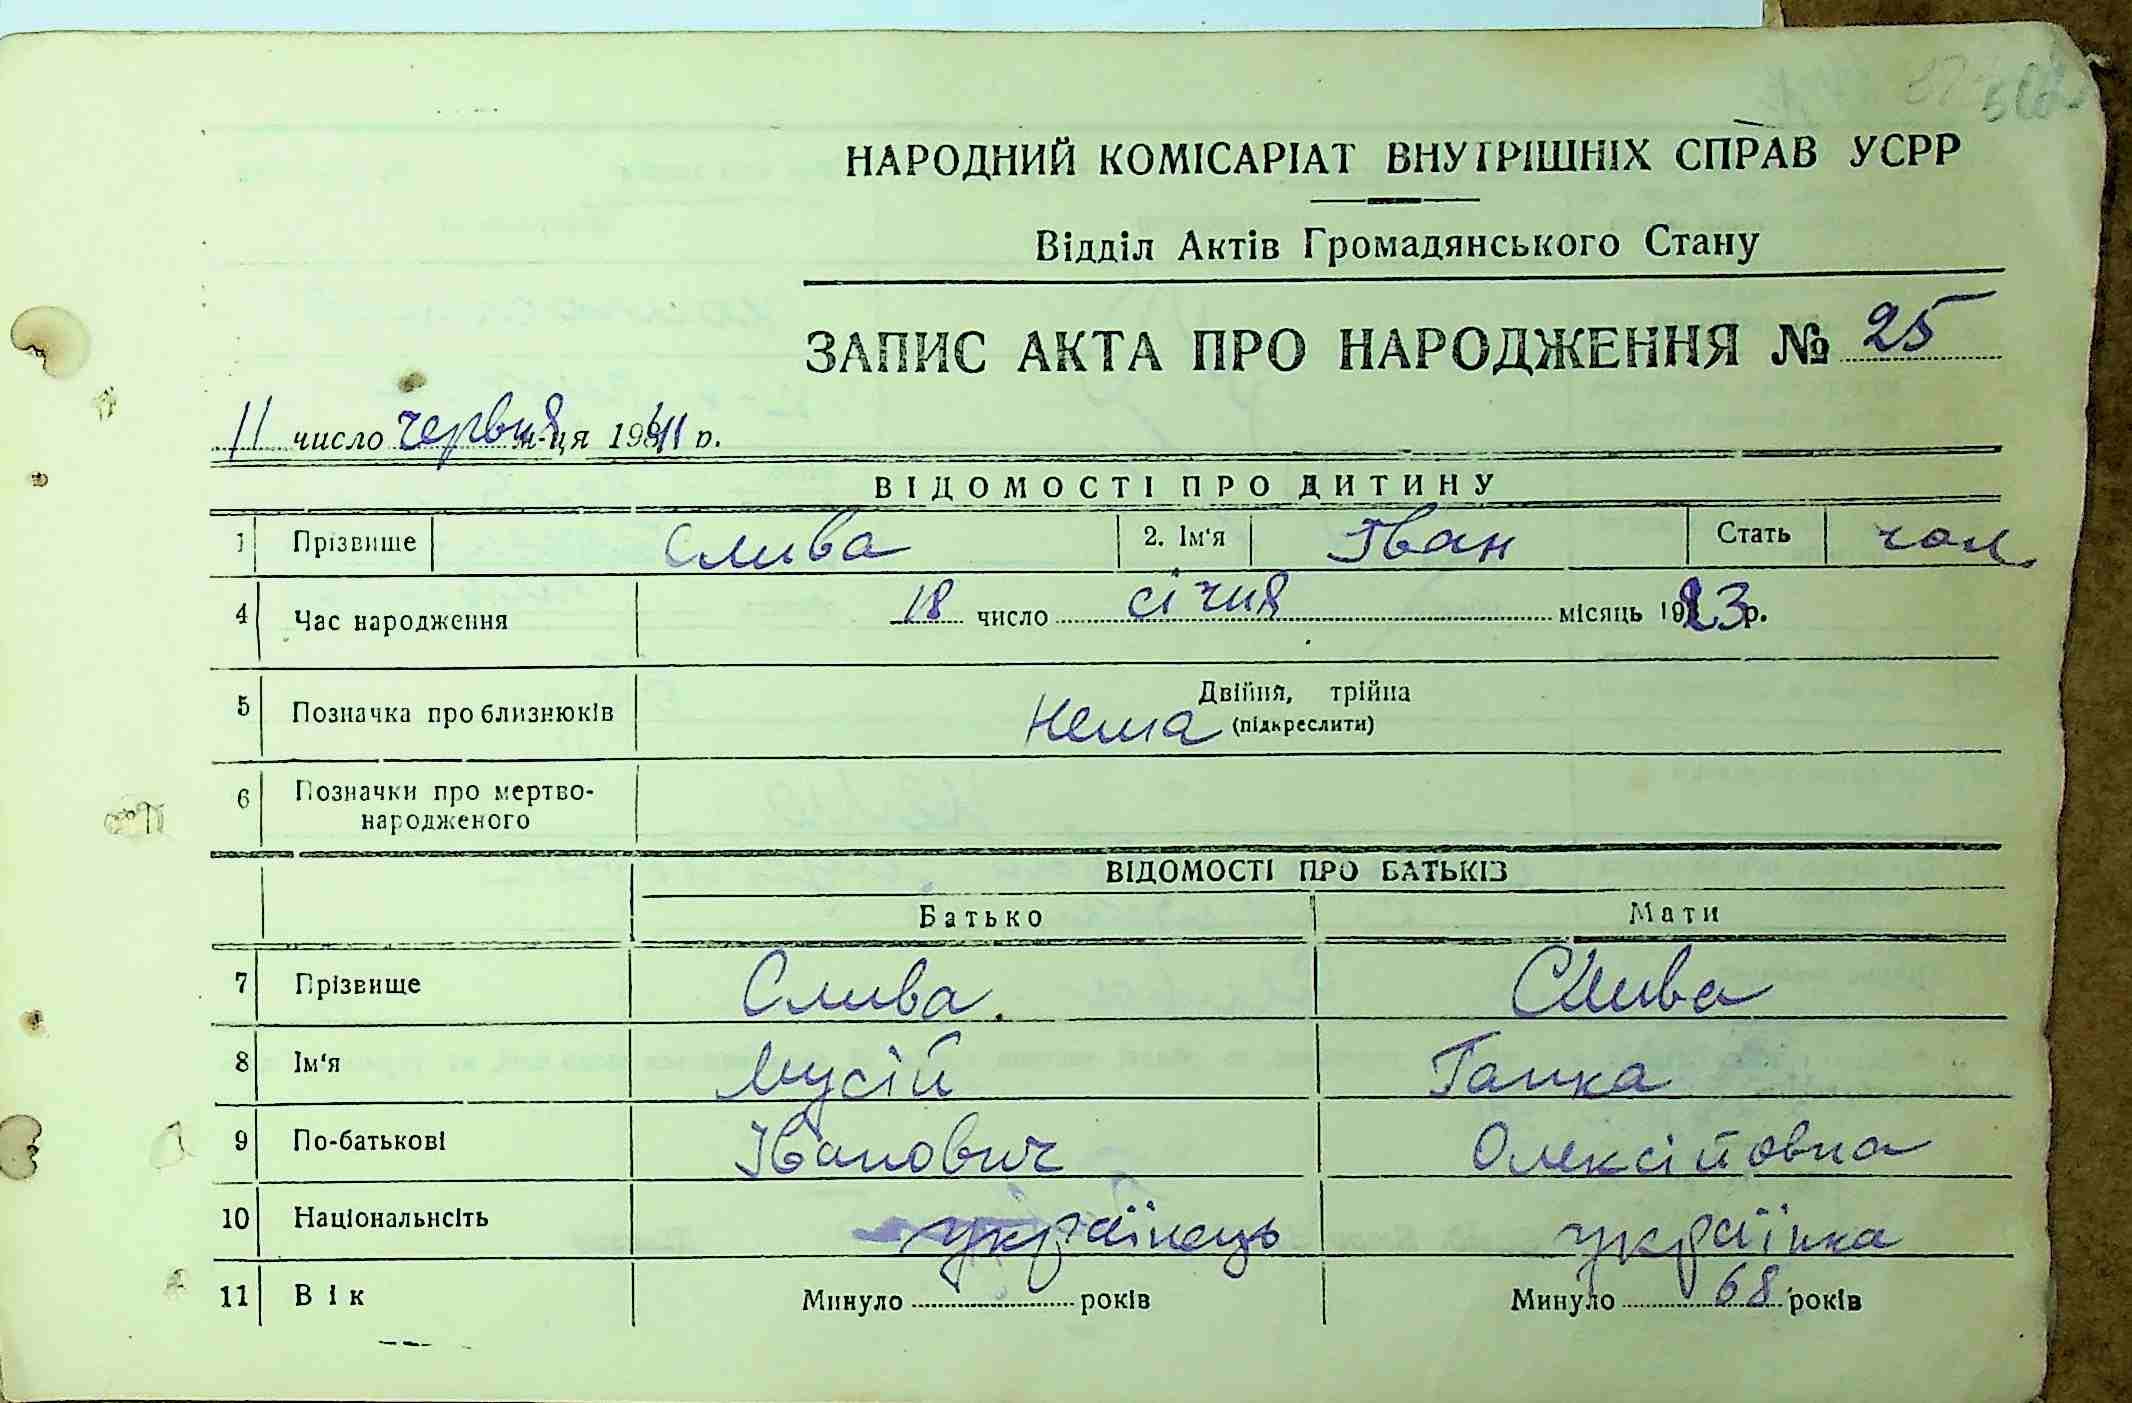 НАРОДНИЙ КОМІСАРІАТ ВНУТРІШНІХ СПРАВ УСРР
Відділ Актів Громадянського Стану
ЗАПИС АКТА ПРО НАРОДЖЕННЯ № 25
11 число червня м-ця 1941 р.
ВІДОМОСТІ ПРО ДИТИНУ
1 Прізвище Слива 2. Ім'я Іван Стать чол
4 Час народження 18 число січня місяць 1923 р.
5 Позначка про близнюків Двійня, трійна
Нема (підкреслити)
6 Позначки про мертво-
народженого
ВІДОМОСТІ ПРО БАТЬКІВ
Батько Мати
7 Прізвище Слива Слива
8 Ім'я Мусій Гапка
9 По-батькові Іванович Олексійовна
10 Національнсіть українець українка
11 Вік Минуло років Минуло 68 років